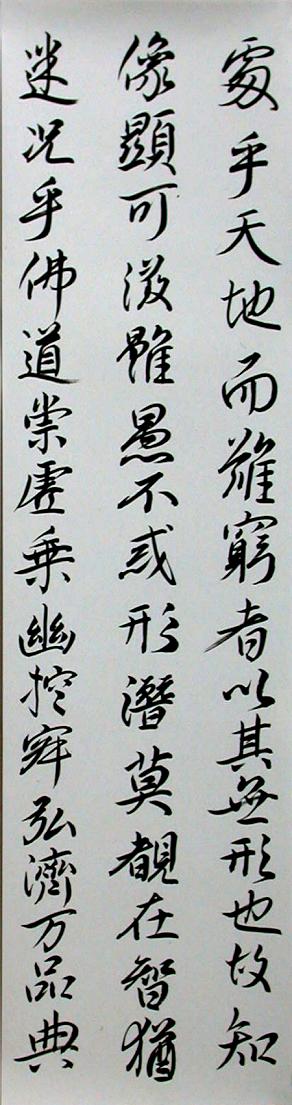 處乎天地而難窮者以其無形也故知
像顯可徵雖愚不惑形潛莫覩在智猶
迷况乎佛道崇虛乘幽控寂弘濟万品典